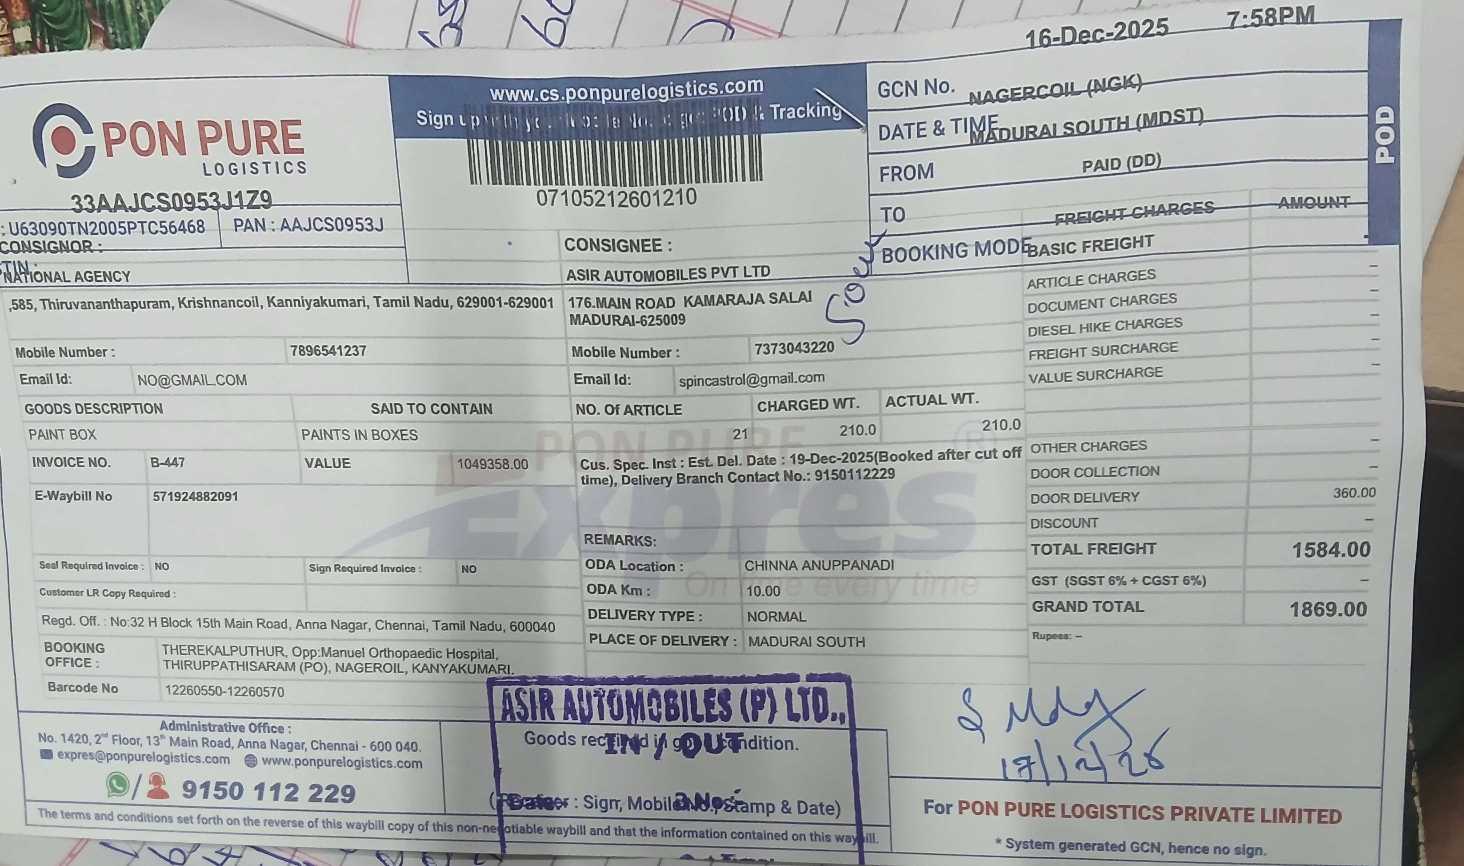 16-Dec-2025 7:58PM
PON PURE
LOGISTICS
33AAJCS0953J1Z9
: U63090TN2005PTC56468
PAN : AAJCS0953J
www.cs.ponpurelogistics.com
Sign up with POD & Tracking
07105212601210
GCN No.
NAGERCOIL (NGK)
DATE & TIME
MADURAI SOUTH (MDST)
FROM
PAID (DD)
TO
BOOKING MODE
POD
CONSIGNOR :
NATIONAL AGENCY
,585, Thiruvananthapuram, Krishnancoil, Kanniyakumari, Tamil Nadu, 629001-629001
Mobile Number : 7896541237
Email Id: NO@GMAIL.COM
CONSIGNEE :
ASIR AUTOMOBILES PVT LTD
176.MAIN ROAD KAMARAJA SALAI
MADURAI-625009
Mobile Number : 7373043220
Email Id: spincastrol@gmail.com
GOODS DESCRIPTION SAID TO CONTAIN NO. Of ARTICLE CHARGED WT. ACTUAL WT.
PAINT BOX PAINTS IN BOXES 21 210.0 210.0
INVOICE NO. B-447 VALUE 1049358.00
E-Waybill No 571924882091
Cus. Spec. Inst : Est. Del. Date : 19-Dec-2025(Booked after cut off
time), Delivery Branch Contact No.: 9150112229
PON PURE
Expres
On time every time
Seal Required Invoice : NO Sign Required Invoice : NO
Customer LR Copy Required :
REMARKS:
ODA Location : CHINNA ANUPPANADI
ODA Km : 10.00
DELIVERY TYPE : NORMAL
PLACE OF DELIVERY : MADURAI SOUTH
FREIGHT CHARGES AMOUNT
BASIC FREIGHT -
ARTICLE CHARGES -
DOCUMENT CHARGES -
DIESEL HIKE CHARGES -
FREIGHT SURCHARGE -
VALUE SURCHARGE -
OTHER CHARGES -
DOOR COLLECTION -
DOOR DELIVERY 360.00
DISCOUNT -
TOTAL FREIGHT 1584.00
GST (SGST 6% + CGST 6%) -
GRAND TOTAL 1869.00
Rupees: -
Regd. Off. : No:32 H Block 15th Main Road, Anna Nagar, Chennai, Tamil Nadu, 600040
BOOKING OFFICE :
THEREKALPUTHUR, Opp:Manuel Orthopaedic Hospital,
THIRUPPATHISARAM (PO), NAGEROIL, KANYAKUMARI.
Barcode No 12260550-12260570
Administrative Office :
No. 1420, 2nd Floor, 13th Main Road, Anna Nagar, Chennai - 600 040.
expres@ponpurelogistics.com www.ponpurelogistics.com
9150 112 229
ASIR AUTOMOBILES (P) LTD.,
IN / OUT
Goods received in good condition.
: Sign, Mobile No., Stamp & Date)
17/12/25
For PON PURE LOGISTICS PRIVATE LIMITED
* System generated GCN, hence no sign.
The terms and conditions set forth on the reverse of this waybill copy of this non-negotiable waybill and that the information contained on this waybill.